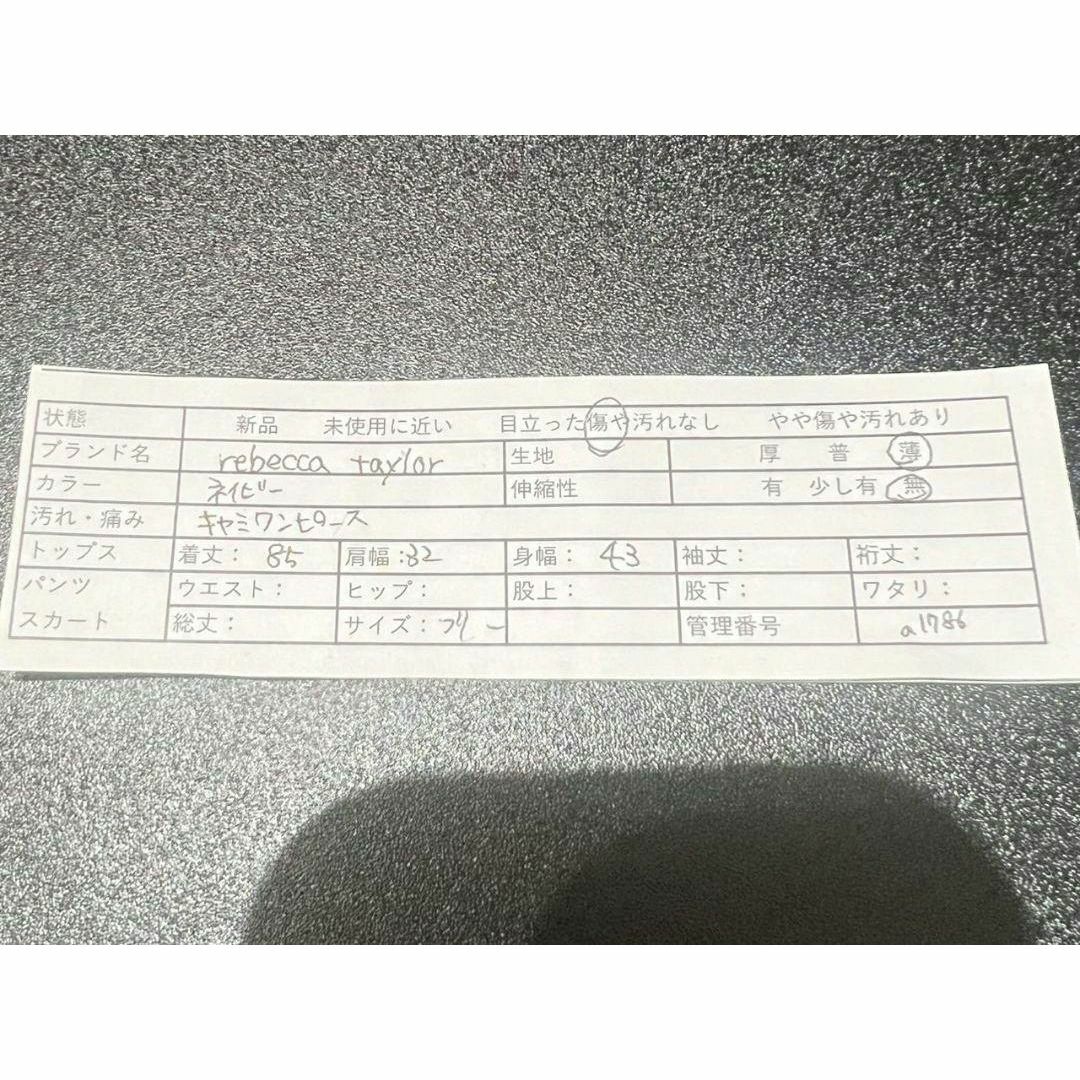 状態 新品 未使用に近い 目立った傷や汚れなし やや傷や汚れあり
ブランド名 rebecca taylor 生地 厚 普 薄
カラー ネイビー 伸縮性 有 少し有 無
汚れ・痛み キャミワンピース
トップス 着丈: 85 肩幅:32 身幅: 43 袖丈: 裄丈:
パンツ ウエスト: ヒップ: 股上: 股下: ワタリ:
スカート 総丈: サイズ: フリー 管理番号 a1786